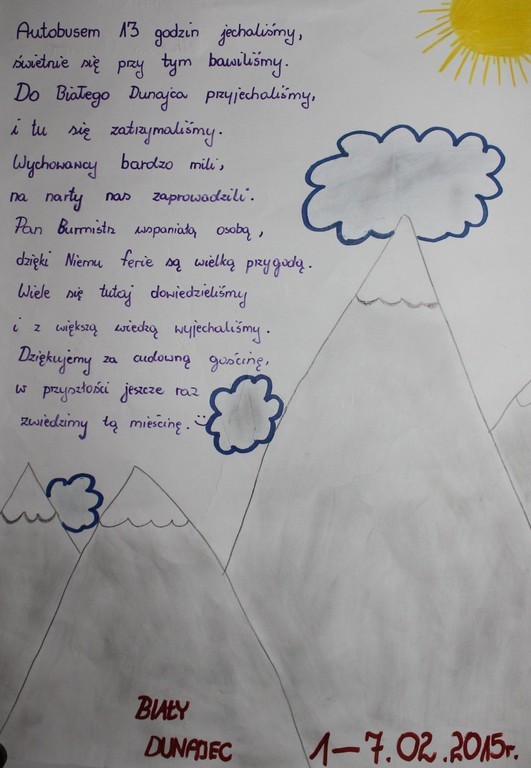 Autobusem 13 godzin jechaliśmy,
świetnie się przy tym bawiliśmy.
Do Białego Dunajca przyjechaliśmy,
i tu się zatrzymaliśmy.
Wychowawcy bardzo mili,
na narty nas zaprowadzili.
Pan Burmistrz wspaniałą osobą,
dzięki Niemu ferie są wielką przygodą.
Wiele się tutaj dowiedzieliśmy
i z większą wiedzą wyjechaliśmy.
Dziękujemy za cudowną gościnę,
w przyszłości jeszcze raz
zwiedzimy tą mieścinę.
BIAŁY
DUNAJEC
1-7.02.2015r.